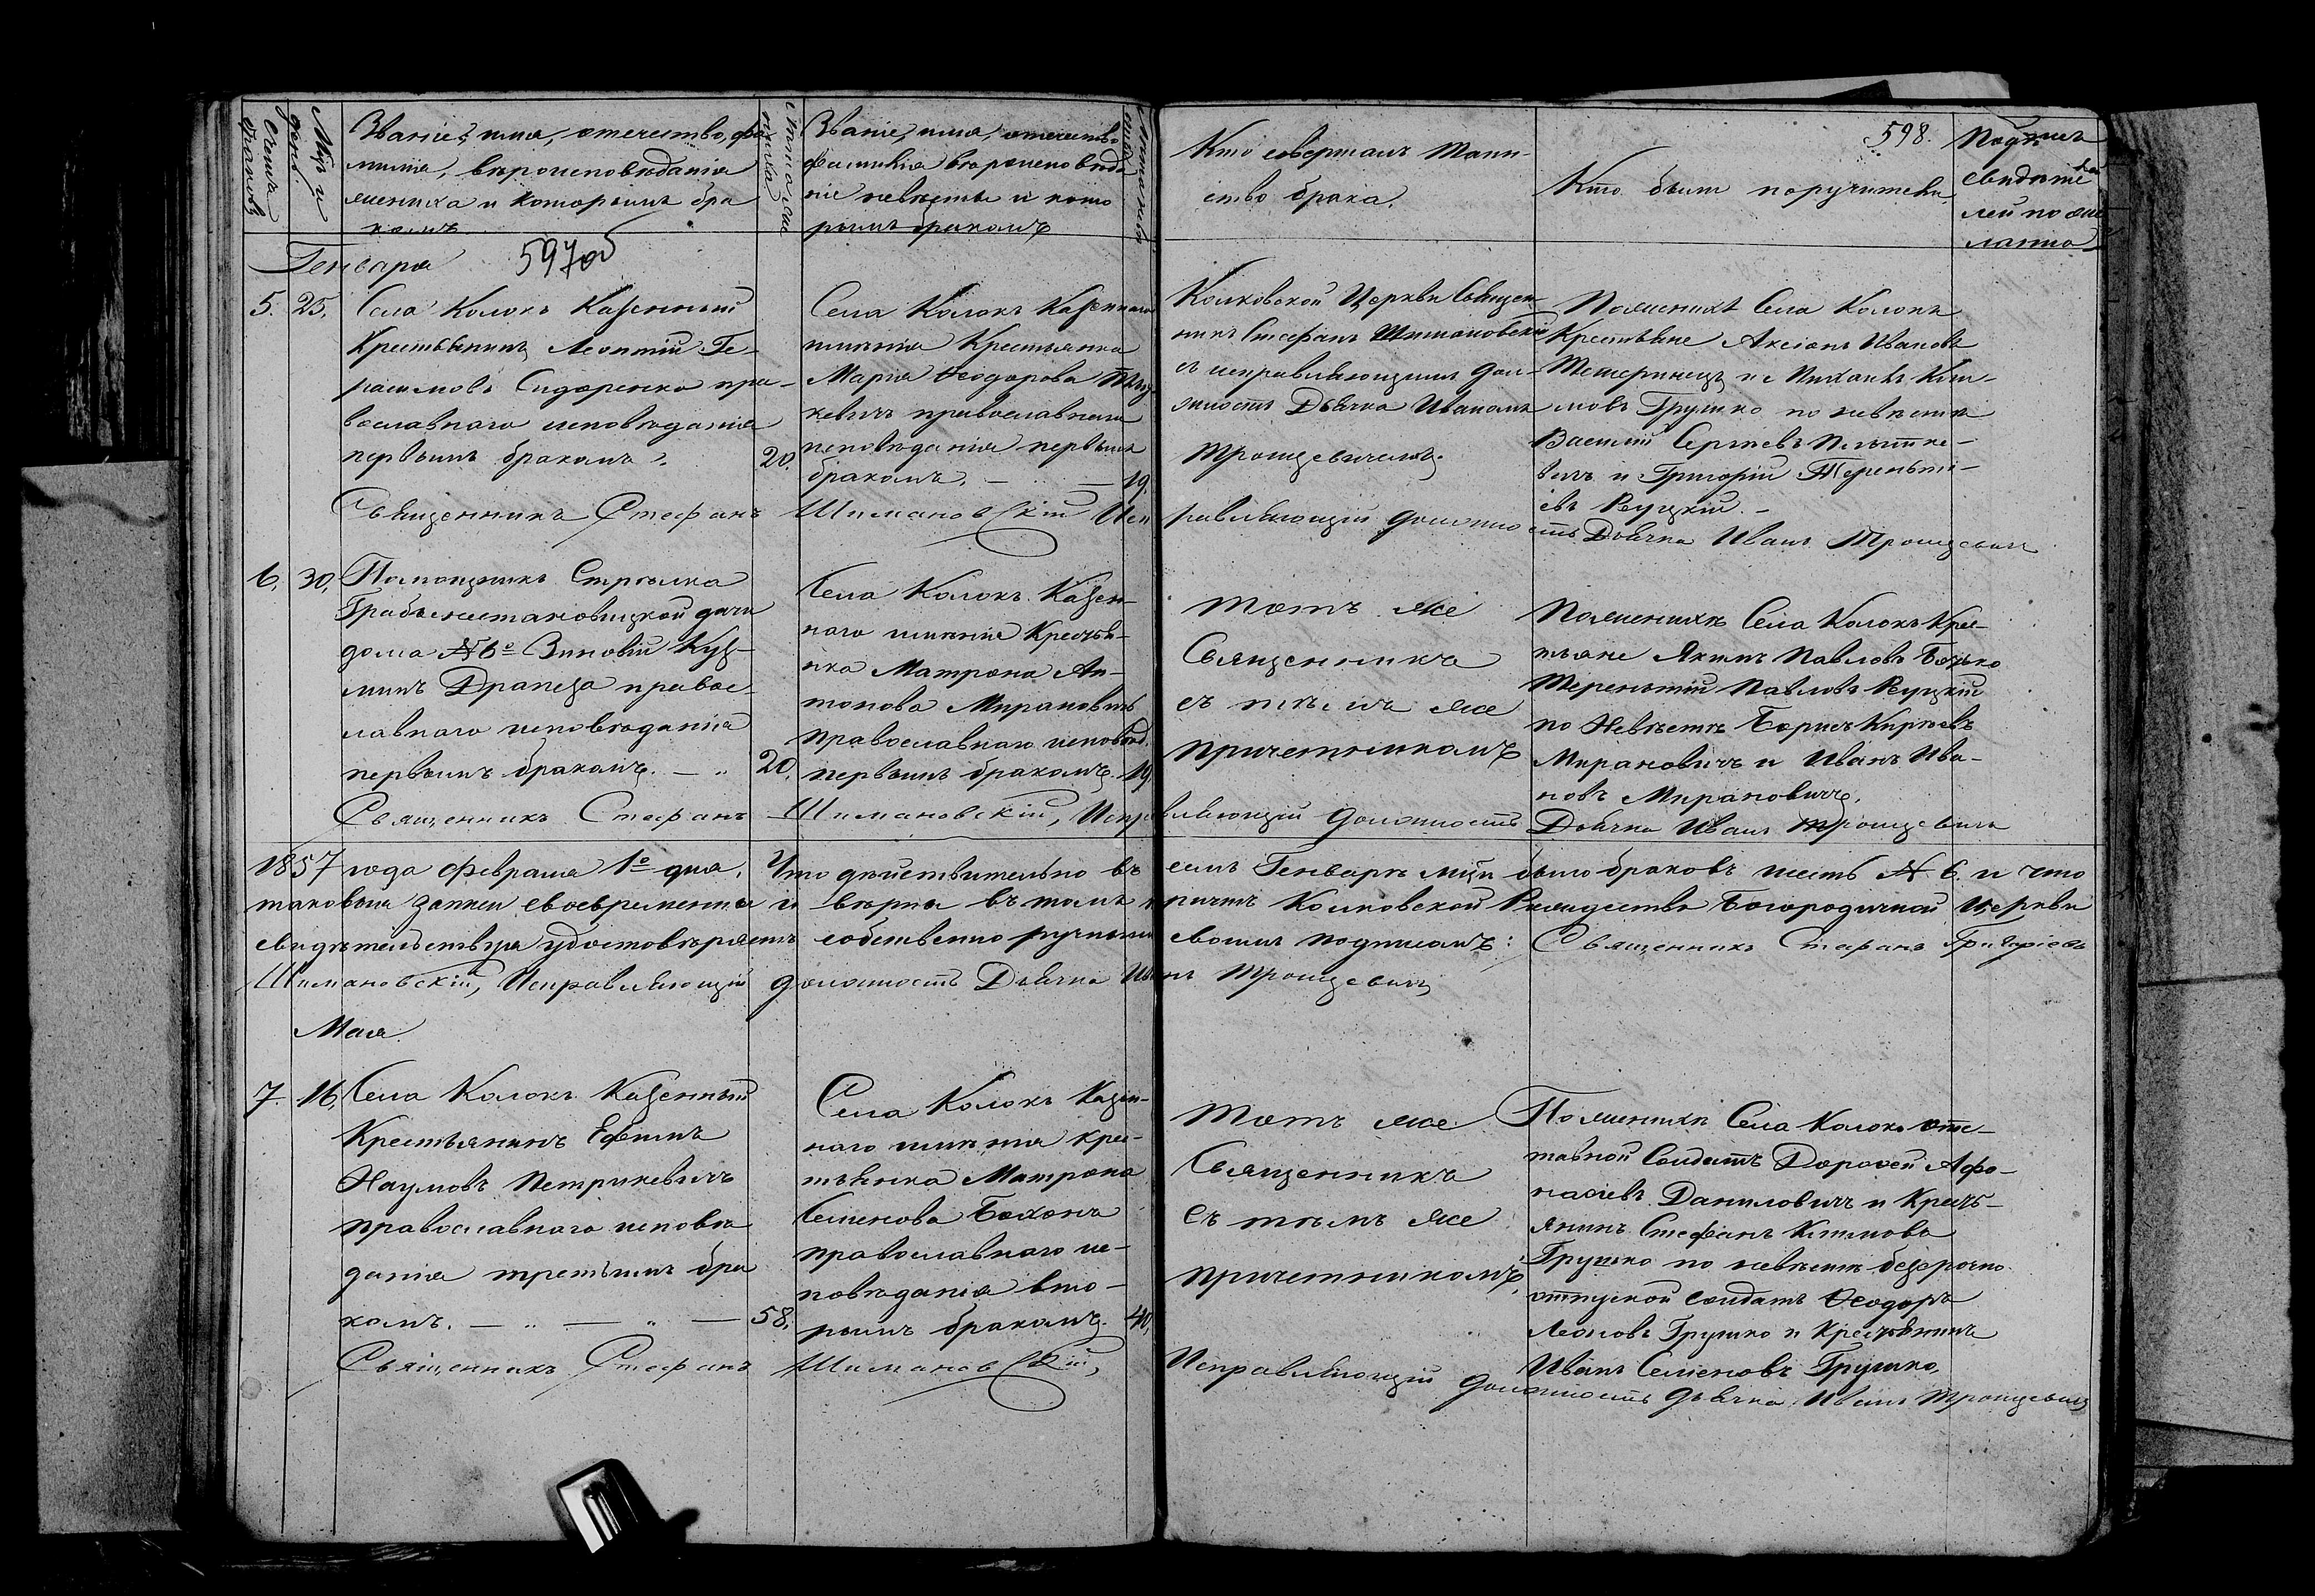 Счетъ браковъ
Мцъ и день
Званіе, имя, отечество, фа
милія, вѣроисповѣданія
жениха и которымъ бра
комъ
Званіе, имя, отечество
фамилія вѣроисповѣда
ніе невѣсты и кото
рымъ бракомъ
Кто совершалъ Таин-
ство брака.
598.
Кто былъ поручители
Подпись
свидѣте
лей по же
ланію
Генваря
597об
5. 25.
Села Колокъ Казенный
Крестьянинъ Леонтій Ге-
расимовъ Сидоренко пра-
вославнаго исповѣданія
первымъ бракомъ.
20.
Села Колокъ Казеннаго
имѣнія Крестьянка
Марія Ѳеодорова
кевичъ православнаго
исповѣданія первымъ
бракомъ. — — 19.
Колковской Церкви Священ-
никъ Стефанъ Шимановскій
съ исправляющимъ дол-
жность Дьячка Иваномъ
Трощевичемъ.
По женихѣ Села Колокъ
Крестьяне Аксіонъ Ивановъ
Тетеринецъ и Михаилъ Кли-
мовъ Грушко по невѣстѣ
Василій Сергѣевъ
вичъ и Григорій Тереньті-
евъ Руцкій. —
Священникъ Стефанъ Шимановскій Исп
равляющій должность Дьячка Иванъ Трощевичъ
6. 30.
Помощникъ Стрѣлка
дачи
дома № 6о Зиновій Куз-
минъ Драпеза правос-
лавнаго исповѣданія
первымъ бракомъ. — „
20.
Села Колокъ Казен-
наго имѣніе Крестья-
нка Матрона Ан-
тонова Мирановичъ
православнаго исповѣд.
первымъ бракомъ. 19
Тотъ же
Священникъ
съ тѣмъ же
причетникомъ
По женихѣ Села Колокъ Крес-
тьяне Якимъ Павловъ
Терентій Павловъ Руцкій
по Невѣстѣ Борисъ Кирѣевъ
Мирановичъ и Иванъ Ива-
новъ Мирановичъ.
Священникъ Стефанъ Шимановскій, Испра
вляющій должность Дьячка Иванъ Трощевичъ
1857 года февраля 1о дня. Что дѣйствительно въ семъ Генварѣ мцѣ было браковъ шесть № 6. и что
таковыя записи своевременны и вѣрны въ томъ причтъ Колковской Рождество Богородичной Церкви
свидѣтельствуя удостовѣряетъ собственно ручнымъ своимъ подписомъ: Священникъ Стефанъ Григоріевъ
Шимановскій, Исправляющій должность Дьячка Иванъ Трощевичъ
Мая.
7. 16.
Села Колокъ Казенный
Крестьянинъ Ефимъ
Наумовъ Петрикевичъ
православнаго исповѣ
данія третьимъ бра
комъ. — „ — „ — 58.
Села Колокъ Казен-
наго имѣнія крес-
тьянка Матрона
Семенова Бахонъ
православнаго ис-
повѣданія вто-
рымъ бракомъ. 40.
Тотъ же
Священникъ
Съ тѣмъ же
причетникомъ.
По женихѣ Села Колокъ отс-
тавной Солдатъ Дороѳей Афо-
насіевъ Даниловичъ и Кресть-
янинъ Стефанъ Климовъ
Грушко по невѣстѣ безсрочно
отпускной солдатъ Ѳеодоръ
Леоновъ Грушко и Крестьянинъ
Иванъ Семеновъ Грушко.
Священникъ Стефанъ Шимановскій,
Исправляющій должность дьячка Иванъ Трощевичъ